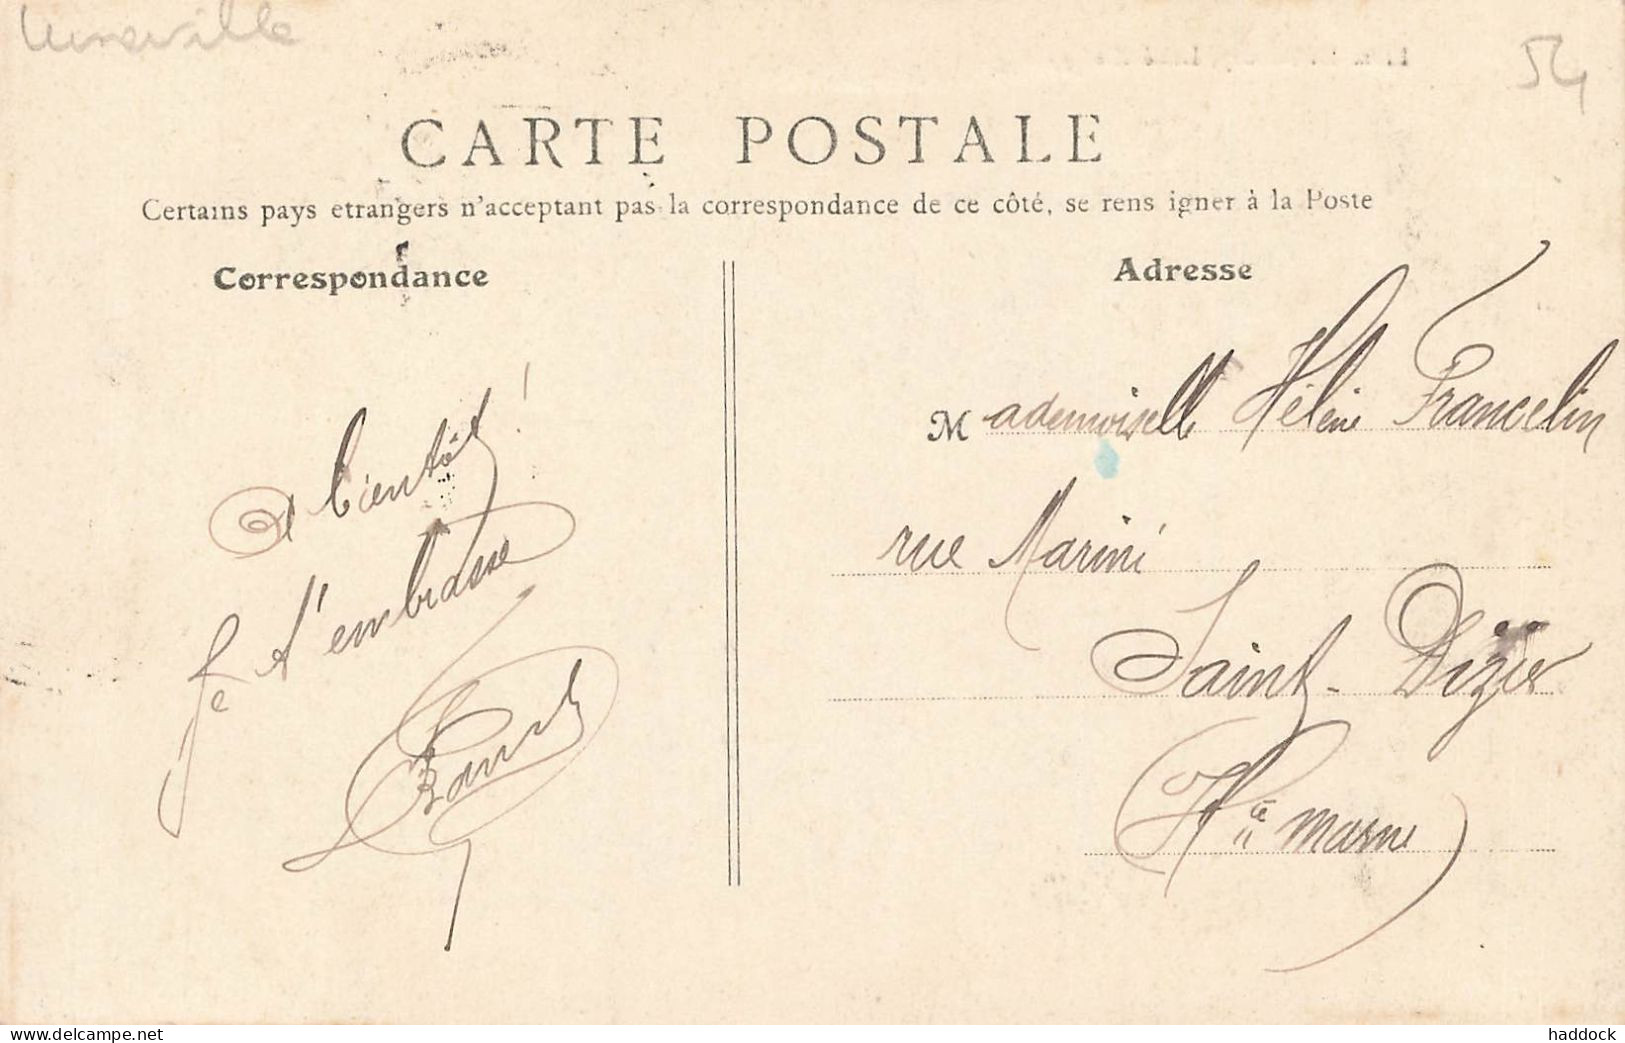 Luneville
54
CARTE POSTALE
Certains pays etrangers n'acceptant pas la correspondance de ce côté, se rens igner à la Poste
Correspondance
Adresse
A bientôt !
Je t'embrasse
Mademoiselle Hélène Francelin
rue Marini
Saint-Dizier
(Hte Marne)
www.delcampe.net
haddock